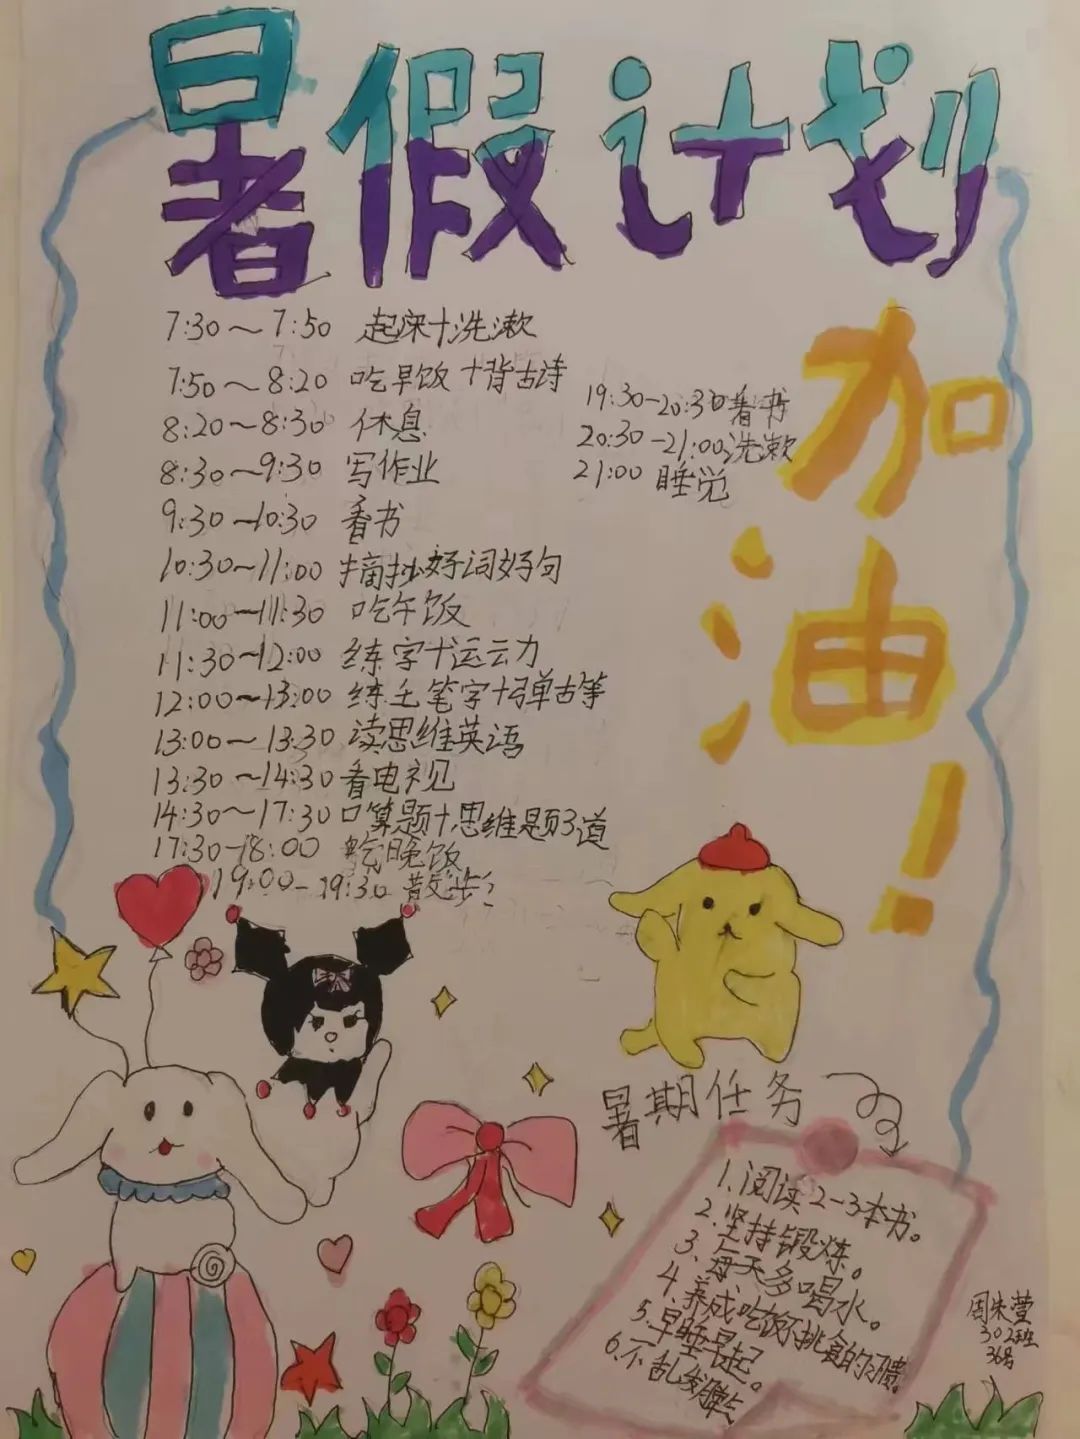 暑假计划
加油！
7:30～7:50 起床+洗漱
7:50～8:20 吃早饭+背古诗
8:20～8:30 休息
8:30～9:30 写作业
9:30－10:30 看书
10:30～11:00 摘抄好词好句
11:00－11:30 吃午饭
11:30～12:00 练字+运云力
12:00～13:00 练毛笔字+弹古筝
13:00～13:30 读思维英语
13:30～14:30 看电视
14:30～17:30 口算题+思维题3道
17:30－18:00 吃晚饭
19:00－19:30 散步
19:30－20:30 看书
20:30－21:00 洗漱
21:00 睡觉
暑期任务
1.阅读2－3本书。
2.坚持锻炼。
3.每天多喝水。
4.养成吃饭不挑食的习惯。
5.早睡早起。
6.不乱发脾气
周朱萱
302班
36号